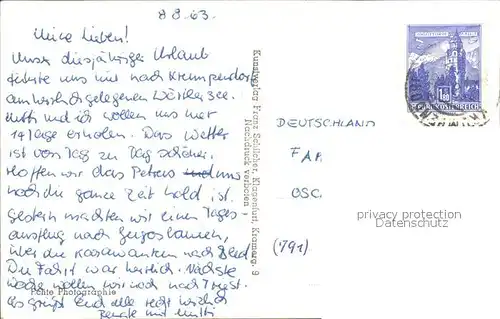 8.8.63.
Meine Lieben!
Unser diesjähriger Urlaub
führte uns nur nach Krumpendorf
am herrlich gelegenen Wörther See.
Mutti und ich wollen uns hier
14 Tage erholen. Das Wetter
ist von Tag zu Tag schöner.
Hoffen wir das Petrus uns
noch die ganze Zeit hold ist.
Gestern machten wir einen Tages-
ausflug nach Jugoslawien,
über die Karawanken nach Bled.
Die Fahrt war herrlich. Nächste
Woche wollen wir noch nach Triest.
Es grüßt Euch alle recht herzlich
Renate und Mutti
Echte Photographie
Kunstverlag Franz Schilcher, Klagenfurt, Kramerg. 9
Nachdruck verboten
1.80
REPUBLIK ÖSTERREICH
DEUTSCHLAND
FAM.
OSC.
(791)
privacy protection
Datenschutz